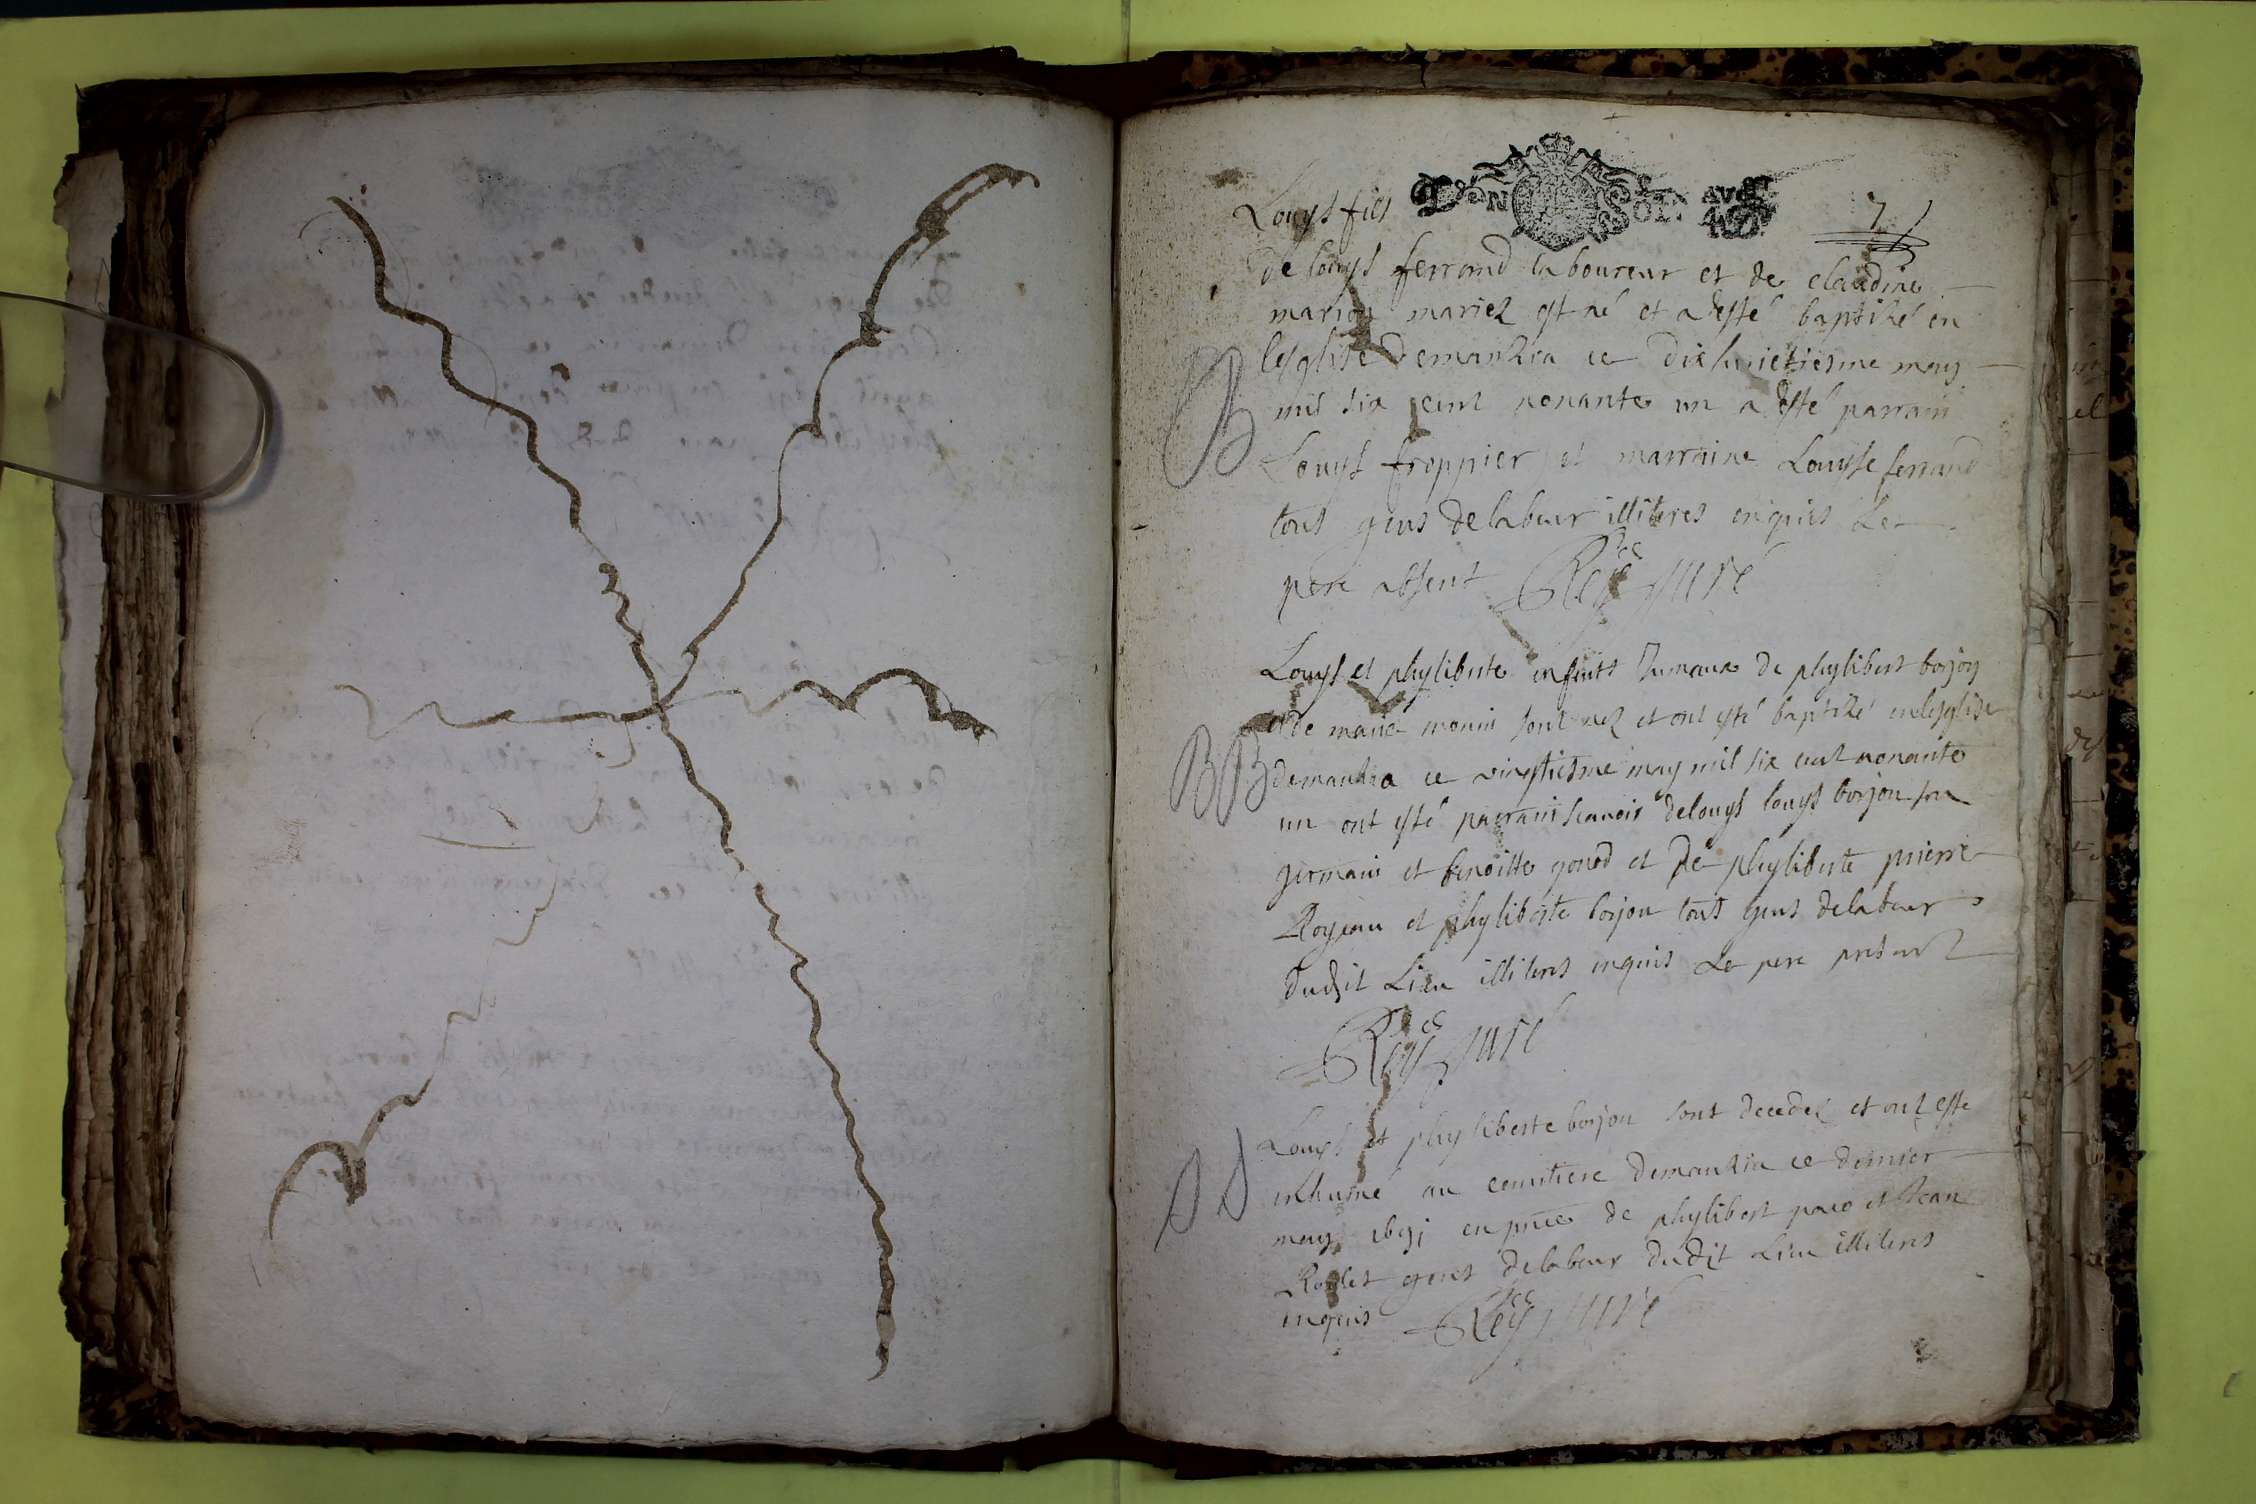 Louys fils
7
de louys ferrand laboureur et de claudine
marion mariez est né et a esté baptizé en
lesglise demanzia ce dixhuictiesme may
mil six cent nonante un a esté parrain
Louys froppier et marraine Louyse ferrand
tous gens delabeur illiteres enquis Le
pere absent Rey curé
B
Louys et phyliberte enfants Jumeaux de phylibert borjon
et de marie monin sont nez et ont esté baptizé enlesglise
demanzia ce vingtiesme may mil six cent nonante
un ont esté parrain scavoir delouys louys borjon son
germain et benoitte gonod et de phyliberte pierre
Royeau et phyliberte borjon tous gens delabeur
dudit Lieu illiteres enquis Le pere present
Rey curé
BB
Louys et phyliberte borjon sont decedez et ont esté
inhumé au cemitiere demanzia ce dernier
may 1691 en pnce de phylibert et Jean
gens delabeur dudit Lieu illiteres
enquis Rey curé